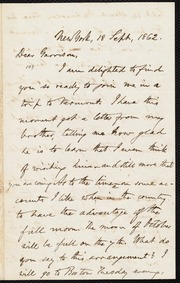 New York, 18 Sept, 1862.
Dear Garrison,
I am delighted to find
you so ready to join me in a
trip to Vermont. I have this
moment got a letter from my
brother telling me how glad
he is to learn that I even think
of visiting him and still more that
you are coming. As to the time on some ac-
counts I like when in the country
to have the advantage of the
full moon. The moon of October
will be full on the 7th. What do
you say to this arrangement? I
will go to Boston Tuesday evening,